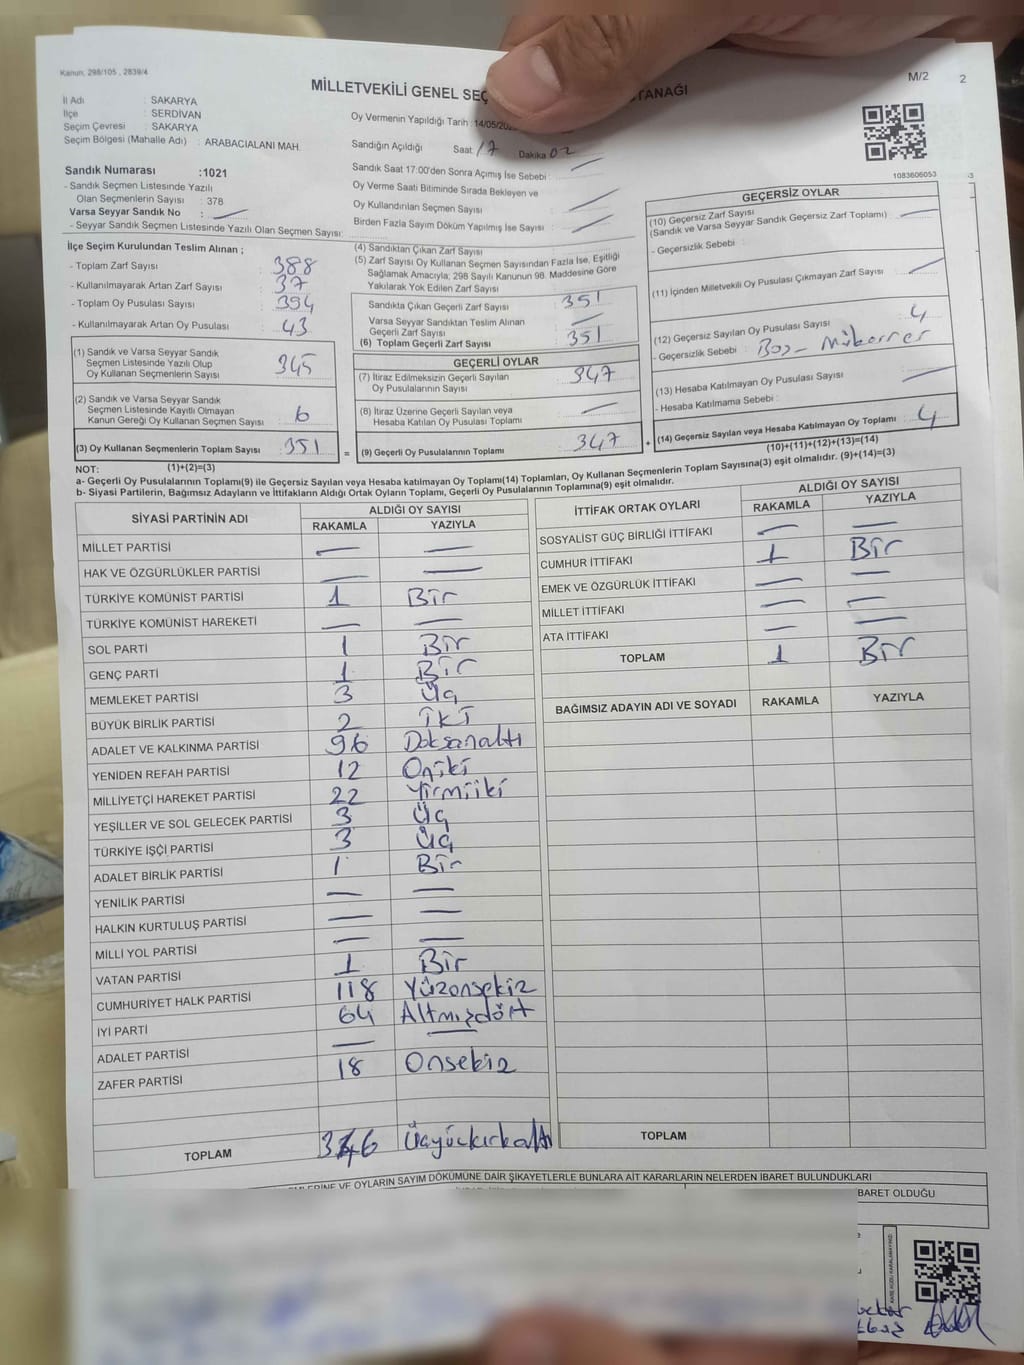 Kanun; 298/105 , 2839/4
M/2 2
MİLLETVEKİLİ GENEL SEÇ TANAĞI
İl Adı : SAKARYA
İlçe : SERDİVAN
Seçim Çevresi : SAKARYA
Seçim Bölgesi (Mahalle Adı) : ARABACIALANI MAH.
Oy Vermenin Yapıldığı Tarih :14/05/202
Sandığın Açıldığı Saat 17 Dakika 02
Sandık Saat 17:00'den Sonra Açımış İse Sebebi : —
Oy Verme Saati Bitiminde Sırada Bekleyen ve
Oy Kullandırılan Seçmen Sayısı : —
Birden Fazla Sayım Döküm Yapılmış İse Sayısı : —
Sandık Numarası :1021
- Sandık Seçmen Listesinde Yazılı
Olan Seçmenlerin Sayısı : 378
Varsa Seyyar Sandık No : —
- Seyyar Sandık Seçmen Listesinde Yazılı Olan Seçmen Sayısı:
1083606053 -3
İlçe Seçim Kurulundan Teslim Alınan ;
- Toplam Zarf Sayısı : 388
- Kullanılmayarak Artan Zarf Sayısı : 37
- Toplam Oy Pusulası Sayısı : 394
- Kullanılmayarak Artan Oy Pusulası : 43
(1) Sandık ve Varsa Seyyar Sandık
Seçmen Listesinde Yazılı Olup
Oy Kullanan Seçmenlerin Sayısı : 345
(2) Sandık ve Varsa Seyyar Sandık
Seçmen Listesinde Kayıtlı Olmayan
Kanun Gereği Oy Kullanan Seçmen Sayısı : 6
(3) Oy Kullanan Seçmenlerin Toplam Sayısı : 351
(4) Sandıktan Çıkan Zarf Sayısı :
(5) Zarf Sayısı Oy Kullanan Seçmen Sayısından Fazla İse, Eşitliği
Sağlamak Amacıyla; 298 Sayılı Kanunun 98. Maddesine Göre
Yakılarak Yok Edilen Zarf Sayısı :
Sandıkta Çıkan Geçerli Zarf Sayısı : 351
Varsa Seyyar Sandıktan Teslim Alınan
Geçerli Zarf Sayısı : —
(6) Toplam Geçerli Zarf Sayısı : 351
GEÇERLİ OYLAR
(7) İtiraz Edilmeksizin Geçerli Sayılan
Oy Pusulalarının Sayısı : 347
(8) İtiraz Üzerine Geçerli Sayılan veya
Hesaba Katılan Oy Pusulası Toplamı : —
= (9) Geçerli Oy Pusulalarının Toplamı : 347
GEÇERSİZ OYLAR
(10) Geçersiz Zarf Sayısı
(Sandık ve Varsa Seyyar Sandık Geçersiz Zarf Toplamı) : —
- Geçersizlik Sebebi :
(11) İçinden Milletvekili Oy Pusulası Çıkmayan Zarf Sayısı : —
(12) Geçersiz Sayılan Oy Pusulası Sayısı : 4
- Geçersizlik Sebebi : Boş - Mükerrer
(13) Hesaba Katılmayan Oy Pusulası Sayısı : —
- Hesaba Katılmama Sebebi :
+ (14) Geçersiz Sayılan veya Hesaba Katılmayan Oy Toplamı : 4
(10)+(11)+(12)+(13)=(14)
NOT: (1)+(2)=(3)
a- Geçerli Oy Pusulalarının Toplamı(9) ile Geçersiz Sayılan veya Hesaba katılmayan Oy Toplamı(14) Toplamları, Oy Kullanan Seçmenlerin Toplam Sayısına(3) eşit olmalıdır. (9)+(14)=(3)
b- Siyasi Partilerin, Bağımsız Adayların ve İttifakların Aldığı Ortak Oyların Toplamı, Geçerli Oy Pusulalarının Toplamına(9) eşit olmalıdır.
SİYASİ PARTİNİN ADI ALDIĞI OY SAYISI
RAKAMLA YAZIYLA
MİLLET PARTİSİ — —
HAK VE ÖZGÜRLÜKLER PARTİSİ — —
TÜRKİYE KOMÜNİST PARTİSİ 1 Bir
TÜRKİYE KOMÜNİST HAREKETİ — —
SOL PARTİ 1 Bir
GENÇ PARTİ 1 Bir
MEMLEKET PARTİSİ 3 Üç
BÜYÜK BİRLİK PARTİSİ 2 İki
ADALET VE KALKINMA PARTİSİ 96 Doksanaltı
YENİDEN REFAH PARTİSİ 12 Oniki
MİLLİYETÇİ HAREKET PARTİSİ 22 Yirmiiki
YEŞİLLER VE SOL GELECEK PARTİSİ 3 Üç
TÜRKİYE İŞÇİ PARTİSİ 3 Üç
ADALET BİRLİK PARTİSİ 1 Bir
YENİLİK PARTİSİ — —
HALKIN KURTULUŞ PARTİSİ — —
MİLLİ YOL PARTİSİ — —
VATAN PARTİSİ 1 Bir
CUMHURİYET HALK PARTİSİ 118 Yüzonsekiz
İYİ PARTİ 64 Altmışdört
ADALET PARTİSİ — —
ZAFER PARTİSİ 18 Onsekiz
TOPLAM 346 Üçyüzkırkaltı
İTTİFAK ORTAK OYLARI ALDIĞI OY SAYISI
RAKAMLA YAZIYLA
SOSYALİST GÜÇ BİRLİĞİ İTTİFAKI — —
CUMHUR İTTİFAKI 1 Bir
EMEK VE ÖZGÜRLÜK İTTİFAKI — —
MİLLET İTTİFAKI — —
ATA İTTİFAKI — —
TOPLAM 1 Bir
BAĞIMSIZ ADAYIN ADI VE SOYADI RAKAMLA YAZIYLA
TOPLAM
VE OYLARIN SAYIM DÖKÜMÜNE DAİR ŞİKAYETLERLE BUNLARA AİT KARARLARIN NELERDEN İBARET BULUNDUKLARI
BARET OLDUĞU